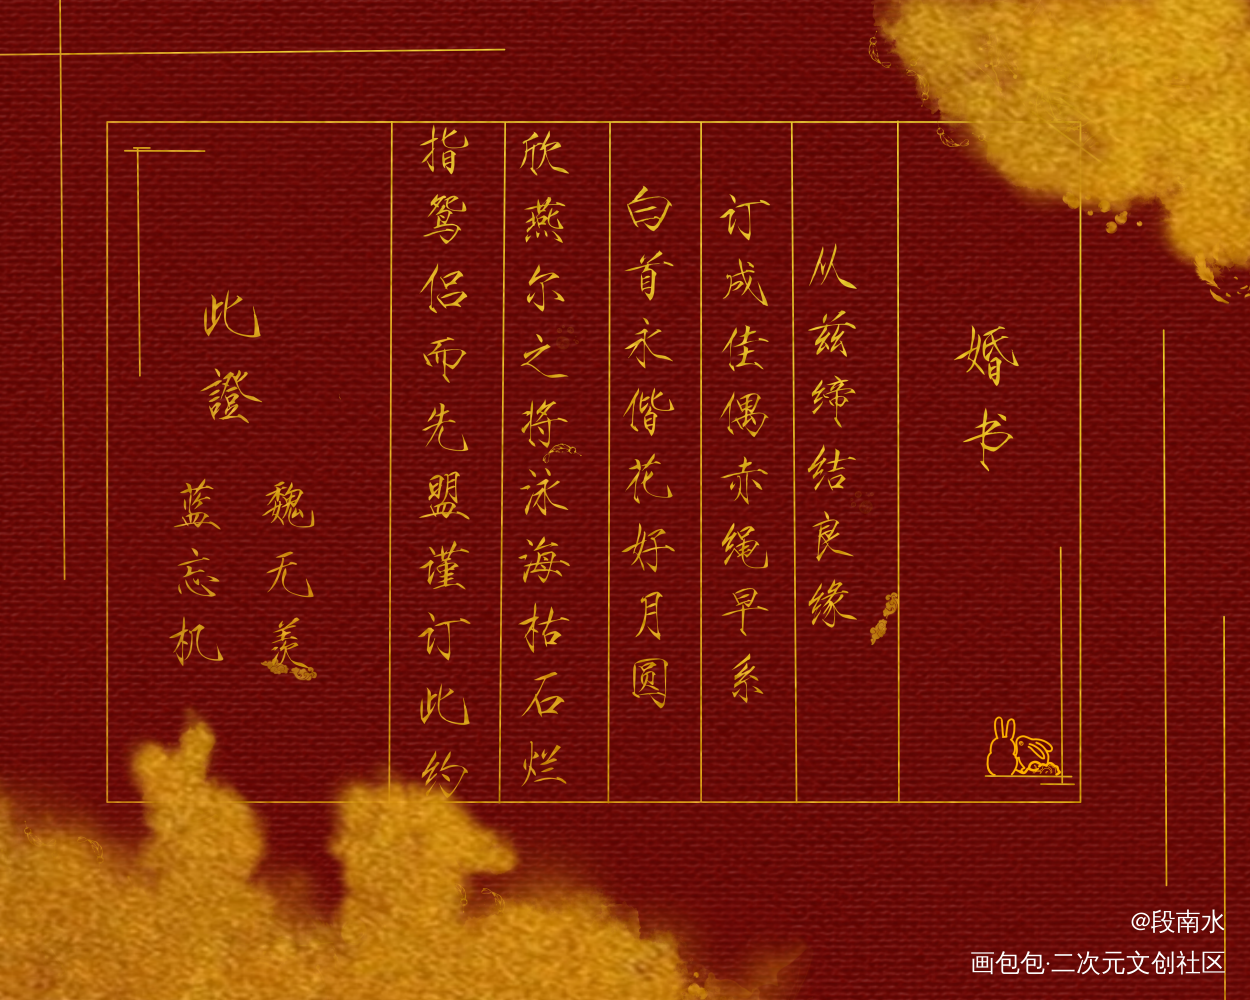 婚书
从兹缔结良缘
订成佳偶赤绳早系
白首永偕花好月圆
欣燕尔之将泳海枯石烂
指鸳侣而先盟谨订此约
此證
魏无羡
蓝忘机
@段南水
画包包·二次元文创社区